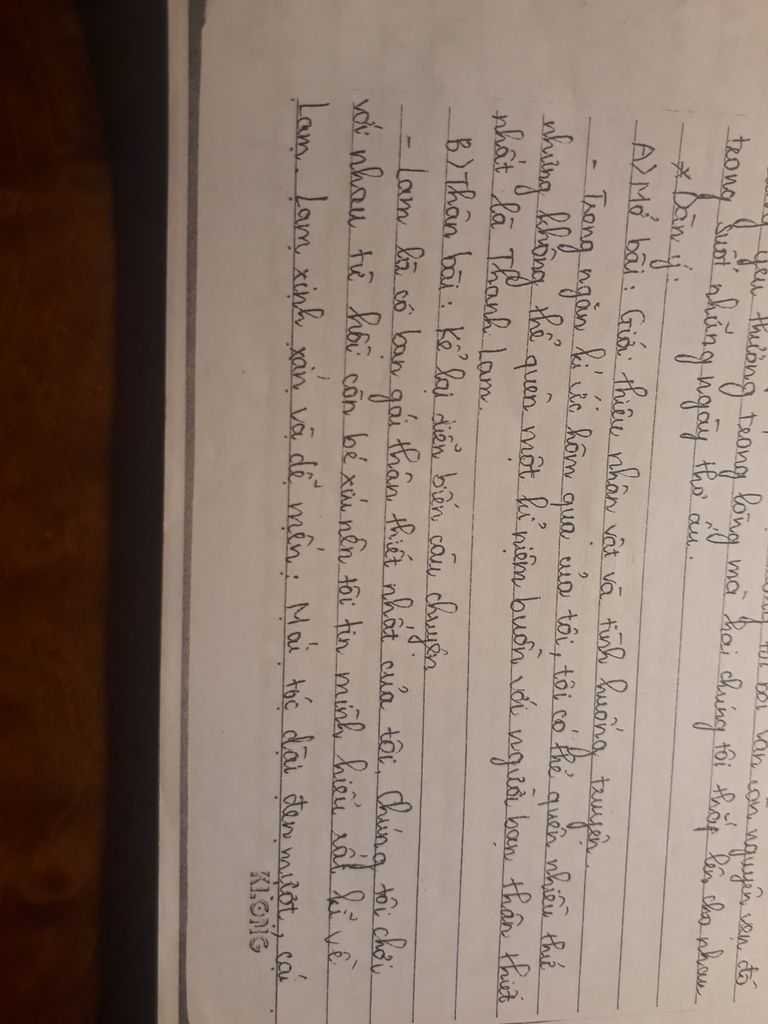 yêu thương trong lòng mà hai chúng tôi thắp lên cho nhau
trong suốt những ngày thơ ấu.
* Dàn ý:
A) Mở bài: Giới thiệu nhân vật và tình huống truyện.
- Trong ngăn kí ức hôm qua của tôi, tôi có thể quên nhiều thứ
nhưng không thể quên một kỉ niệm buồn với người bạn thân thiết
nhất là Thanh Lam.
B) Thân bài: Kể lại diễn biến câu chuyện
- Lam là cô bạn gái thân thiết nhất của tôi, chúng tôi chơi
với nhau từ hồi còn bé xíu nên tôi tin mình hiểu rất kĩ về
Lam. Lam xinh xắn và dễ mến: Mái tóc dài đen mượt, cái
KLONG